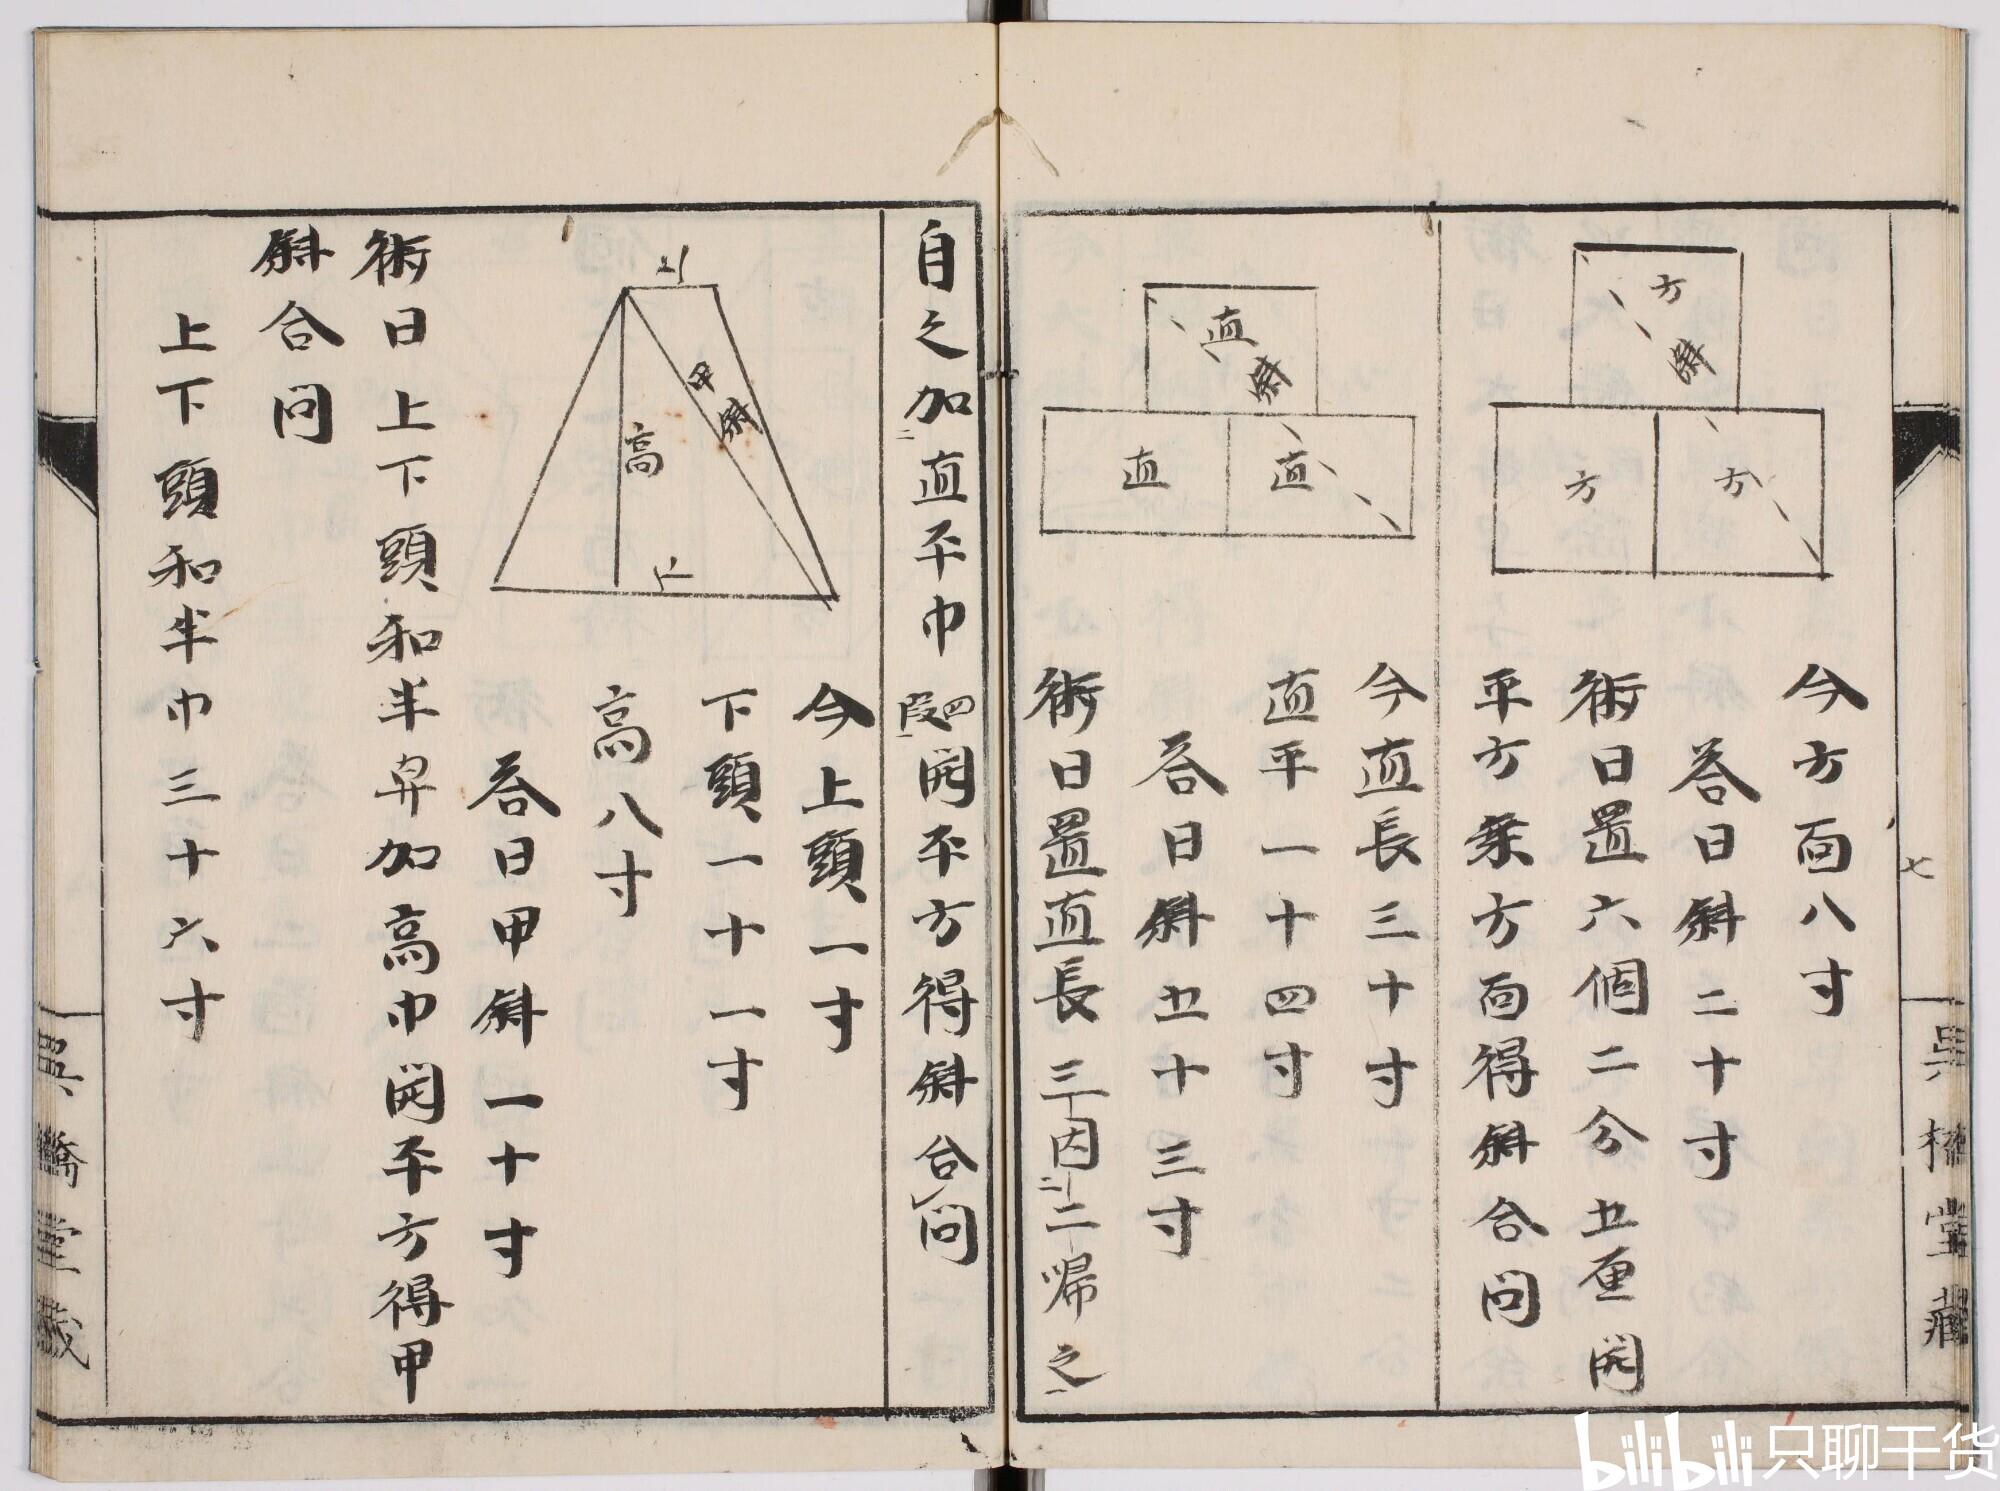 方
斜
方
方
今方面八寸
答曰斜二十寸
術曰置六個二分五厘開
平方乗方面得斜合問
直
斜
直
直
今直長三十寸
直平一十四寸
答曰斜五十三寸
術曰置直長三因二帰之
自之加直平巾四段開平方得斜合問
上
甲斜
高
下
今上頭一寸
下頭一十一寸
高八寸
答曰甲斜一十寸
術曰上下頭和半巾加高巾開平方得甲
斜合問
上下頭和半巾三十六寸
七
橋堂藏
橋堂
bilibili 只聊干货